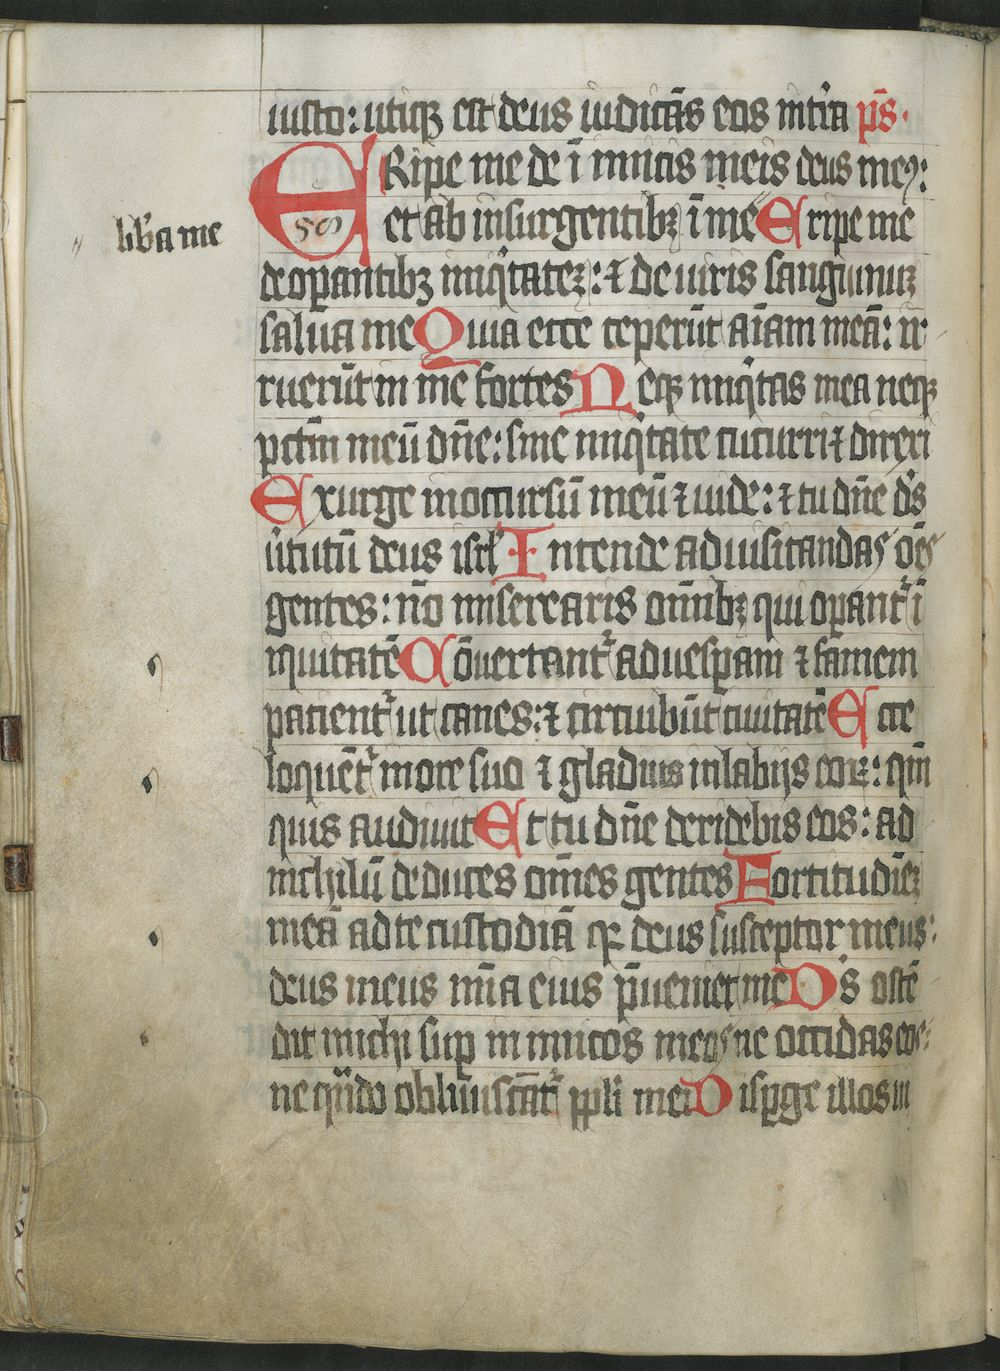 iusto: utiqꝫ est deus iudicās eos in t̄ra p̄s.
ERipe me de inīmicis meis deus meꝰ:
58
et ab insurgentibꝫ ī me Eripe me
lib̄a me
de opantibꝫ iniq̄tatē: ⁊ de uiris sanguinuꝫ
salua me Quia ecce ceperūt aīam meā: ir
ruerūt in me fortes Neqꝫ iniq̄tas mea neqꝫ
pctm̄ meū dn̄e: sine iniq̄tate cucurri ⁊ direxi
Exurge in occursū meū ⁊ uide: ⁊ tu dn̄e ds̄
ūtutū deus isrl̄ Intende ad uisitandas oēs
gentes: nō miserearis om̄ibꝫ qui opant᷑ ī
iquitatē Cōuertant᷑ ad uespam ⁊ famem
patient᷑ ut canes: ⁊ circuibūt ciuitatē Ecce
loquēt᷑ in ore suo ⁊ gladius in labijs eoꝝ: qm̄
quis audiuit Et tu dn̄e deridebis eos: ad
nichilū deduces om̄es gentes Fortitudinē
meā ad te custodiā qꝛ deus susceptor meus:
deus meus mīa eius p̄ueniet me Ds̄ ostē
dit michi sup inimicos meos ne occidas eos:
ne qn̄do obliuiscāt᷑ ppli mei Dispge illos in